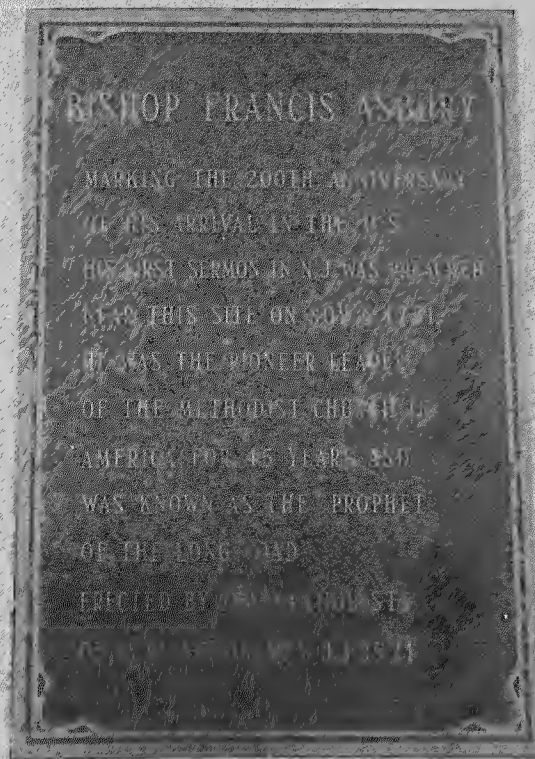 BISHOP FRANCIS ASBURY
MARKING THE 200TH ANNIVERSARY
OF HIS ARRIVAL IN THE U.S.
HIS FIRST SERMON IN N.J. WAS PREACHED
NEAR THIS SITE ON NOV.
HE WAS THE PIONEER LEADER
OF THE METHODIST CHURCH IN
AMERICA FOR 45 YEARS AND
WAS KNOWN AS THE PROPHET
OF THE LONG ROAD
ERECTED BY METHODISTS